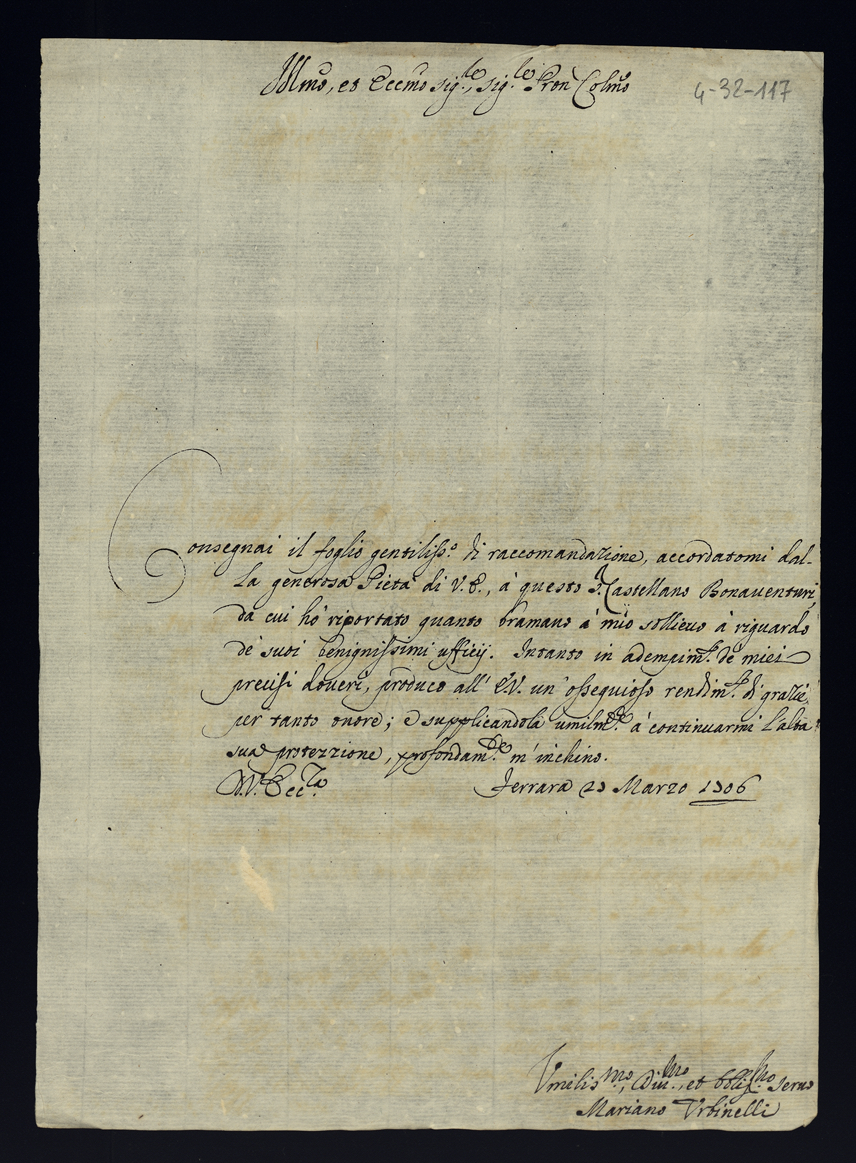 Illmo, et Eccmo Sig.re, Sig.re Pron Colmo
4-32-117
Consegnai il foglio gentiliss.o di raccomandazione, accordatomi dal-
la generosa Pietà di V.E., à questo S. Castellano Bonaventuri,
da cui hò riportato quanto bramavo à mio sollievo à riguardo
de' suoi benignissimi ufficij. Intanto in adempim.to de' miei
precisi doveri, produco all' E.V. un' ossequioso rendim.to di grazie
per tanto onore; e supplicandola umilm.te à continuarmi l'alta
sua protezzione, profondam.te m' inchino.
D.V. Ecc.za Ferrara 23 Marzo 1706
Umiliss.mo, Div.mo, et Obblig.mo Serv.
Mariano Urbinelli